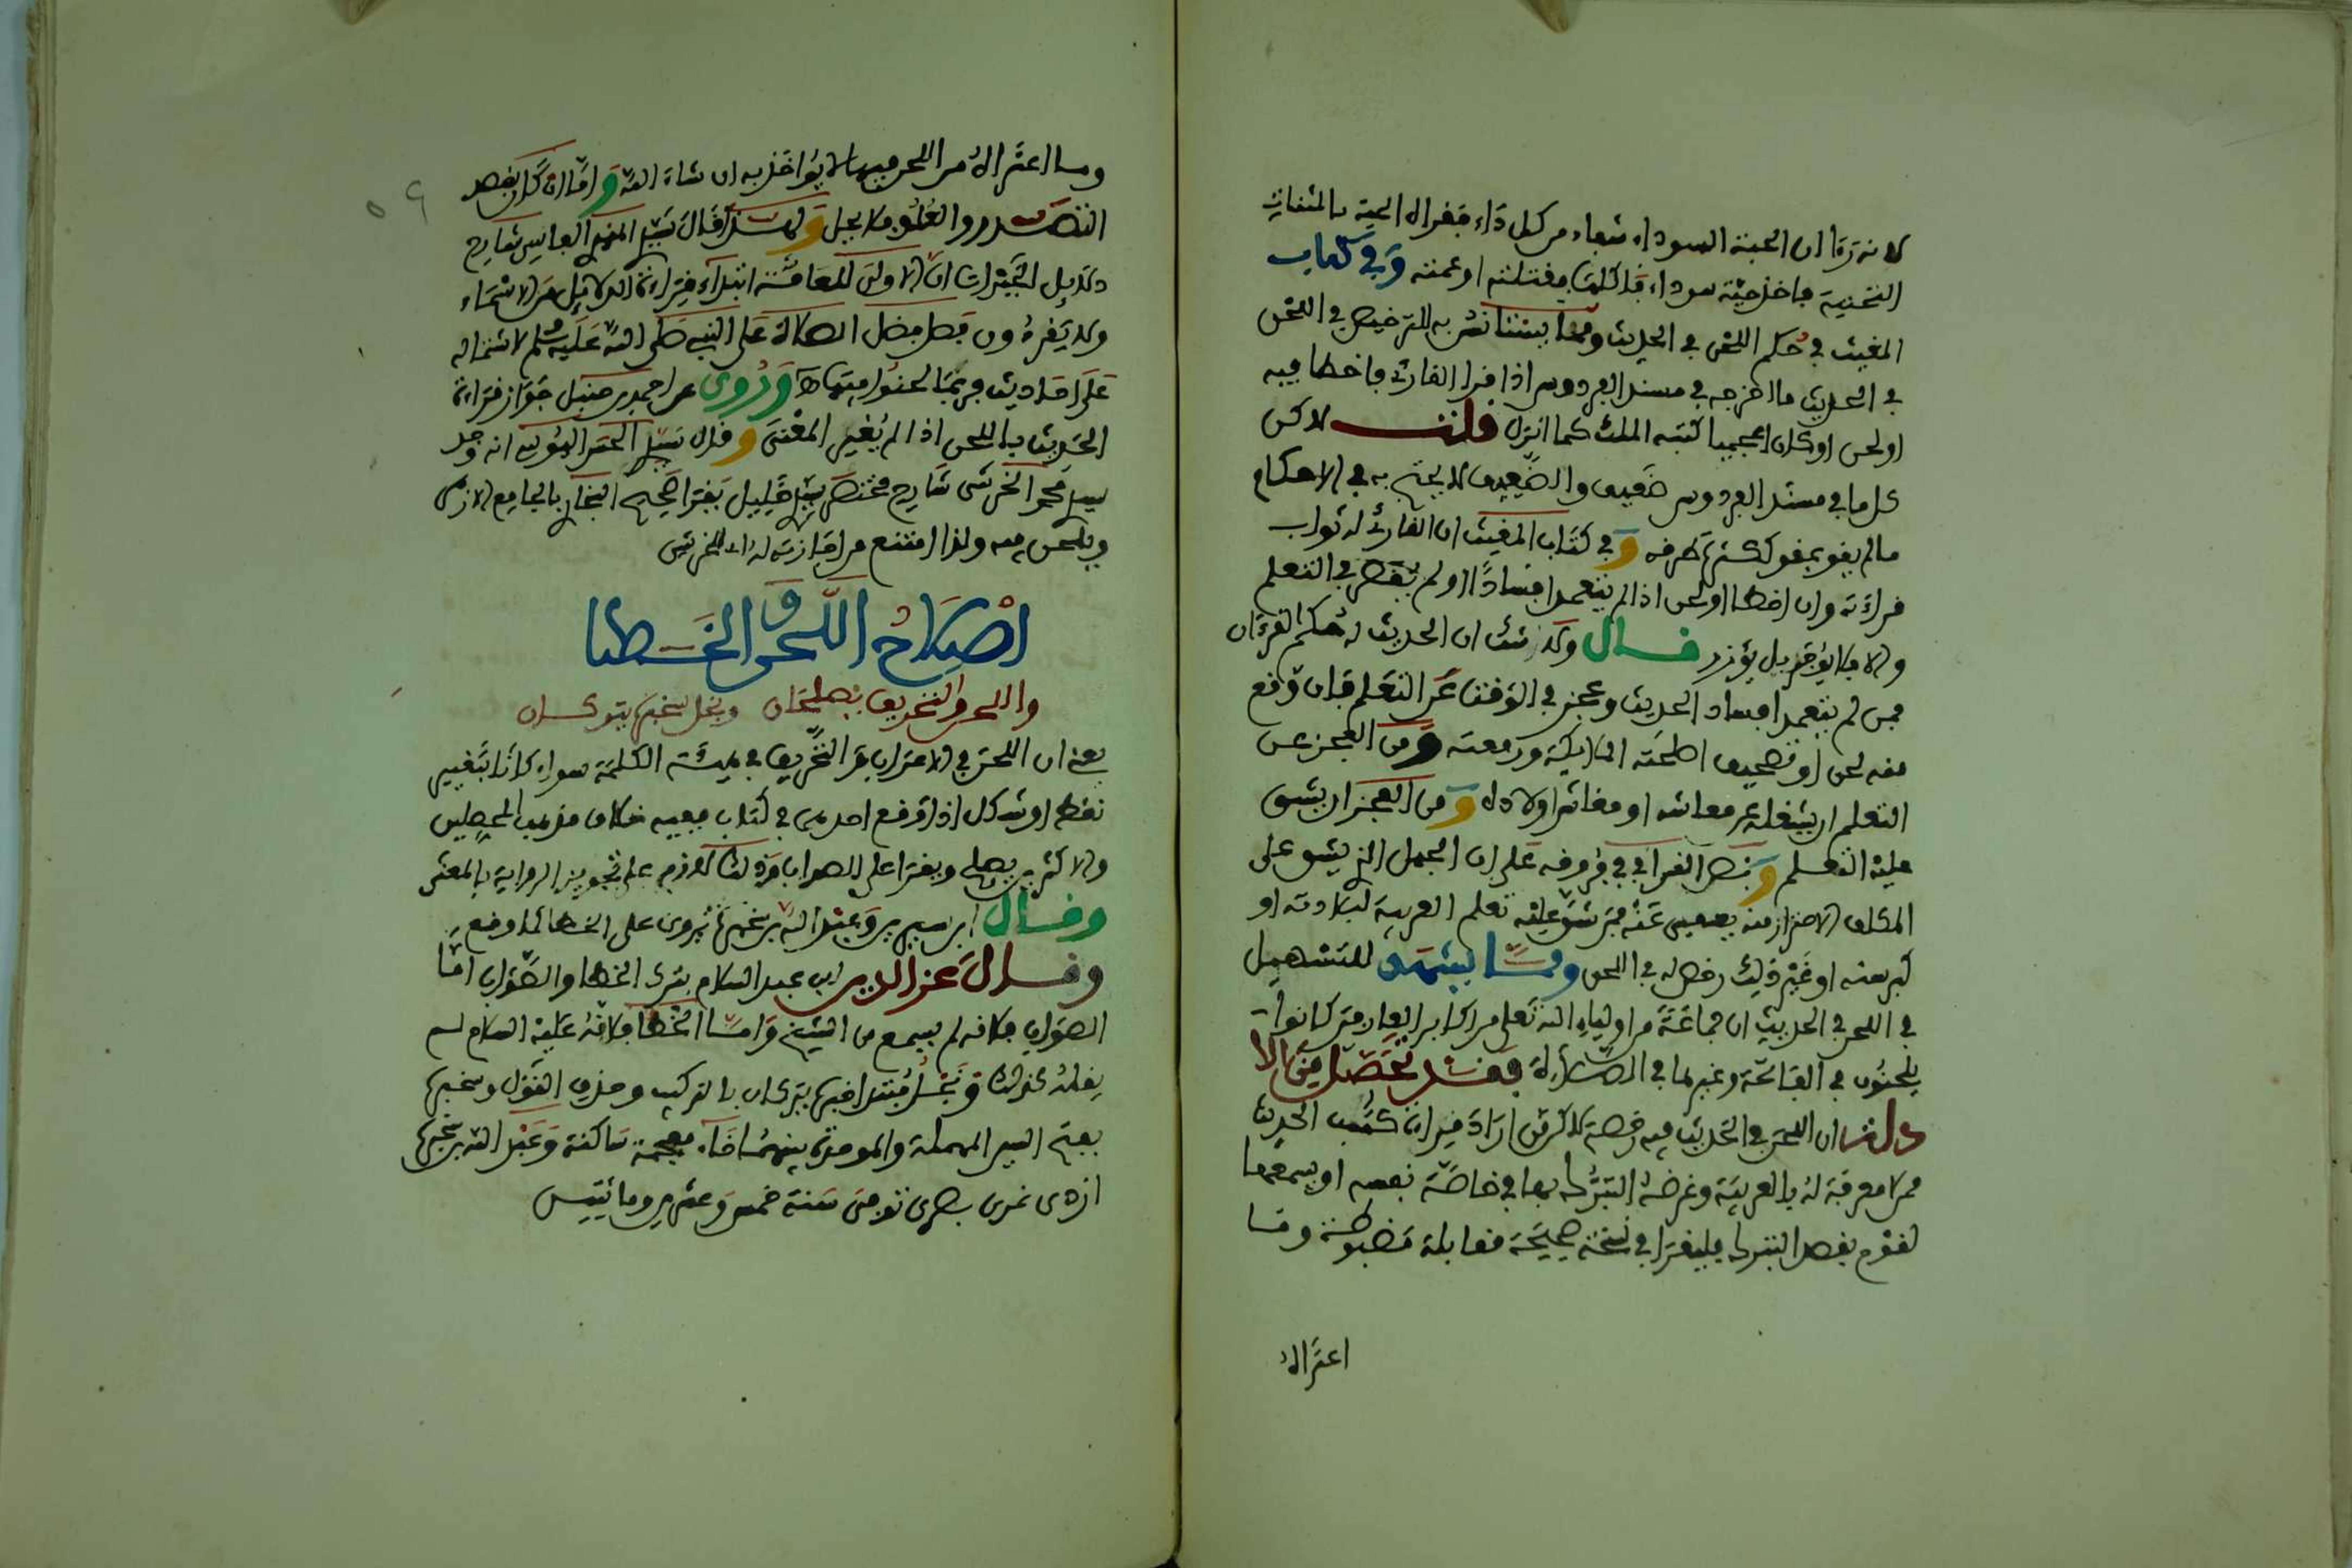 لانه رءا ان الحبة السوداء شفاء من كل داء فقراه الحية بالمثناة
التحتية فاخذ حية سوداء فاكلها فقتلته او عمته وفي كتاب
المغيث في حكم اللحن في الحديث ومما يستانس به للترخيص في اللحن
في الحديث ما اخرجه في مسند الفردوس اذا قرا القارئ فاخطا فيه
او لحن او كان اعجميا كتبه الملك كما انزل قلت لاكن
كل ما في مسند الفردوس ضعيف والضعيف لا يحتج به في الاحكام
ما لم يقو بمقو ككثرة طرفه وفي كتاب المغيث ان القارئ له ثواب
قراءته وان اخطا او لحن اذا لم يتعمد افسادا او لم يقصر في التعلم
والا فلا يوجر بل يوزر قال ولا شك ان الحديث له حكم القرءان
فمن لم يتعمد افساد الحديث وعجز في الوقت عن التعلم فان وقع
منه لحن او تصحيف اصلحته الملايكة ورفعته ومن العجز عن
التعلم ان يشغله عن معاشه او معاش اولاده ومن العجز ان يشق
عليه التعلم ونص القرافي في فروقه على ان الجهل الذي يشق على
المكلف الاحتراز منه يعفى عنه فمن شق عليه تعلم العربية لبلادته او
كبر سنه او غير ذلك رخص له في اللحن ومما يشهد للتسهيل
في اللحن في الحديث ان جماعة من اولياء الله تعلى من اكابر العارفين كانوا
يلحنون في الفاتحة وغيرها في الصلاة فقد تحصل من الا
دلة ان اللحن في الحديث فيه رخصة لاكن من اراد قراة كتب الحديث
ممن لا معرفة له بالعربية وغرضه التبرك بها في خاصة نفسه او يسمعها
لقوم بقصد التبرك فليقرا في نسخة صحيحة مقابلة مضبوطة وما
اعتراه
وما اعتراه من اللحن فيها لا يؤاخذ به ان شاء الله واما ان كان بقصد
التصدر والعلو فلا يحل ولهذا قال
دلايل الخيرات ان الاولى للعامة ابتداء قراءة الدلائل من الاسماء
ولا يقرءون فصل فضل الصلاة على النبي صلى الله عليه وسلم لاشتماله
على احاديث فربما لحنوا فيها وروى عن احمد بن حنبل جواز قراءة
الحديث باللحن اذا لم يغير المعنى وقال انه وجد
محمد الخرشي شارح مختصر خليل يقرا صحيح البخاري بالجامع الازهر
ويلحن فيه ولذا امتنع من اجازته له اي للخرشي
اصلاح اللحن والخطا
واللحن والتحريف يصلحان ونجل سخبرة يتركان
يعني ان اللحن في الاعراب والتحريف في هيئة الكلمة سواء كانا بتغيير
نقط او شكل اذا وقع احدهما في كتاب ففيه خلاف مذهب المحصلين
والاكثرين يصلح ويقرا على الصواب وذلك لازم على تجويز الرواية بالمعنى
وقال ابن سيرين وعبد الله بن سخبرة يروى على الخطا كما وقع
وقال عز الدين ابن عبد السلام يترك الخطا والصواب اما
الصواب فلانه لم يسمع من الشيخ واما الخطا فلانه عليه السلام لم
يقله كذلك ونجل مبتدا خبره يتركان بالتركيب وحذف القول وسخبرة
بفتح السين المهملة والموحدة بينهما خاء معجمة ساكنة وعبد الله بن سخبرة
ازدى نمرى بصرى توفى سنة خمس وعشرين ومائتين